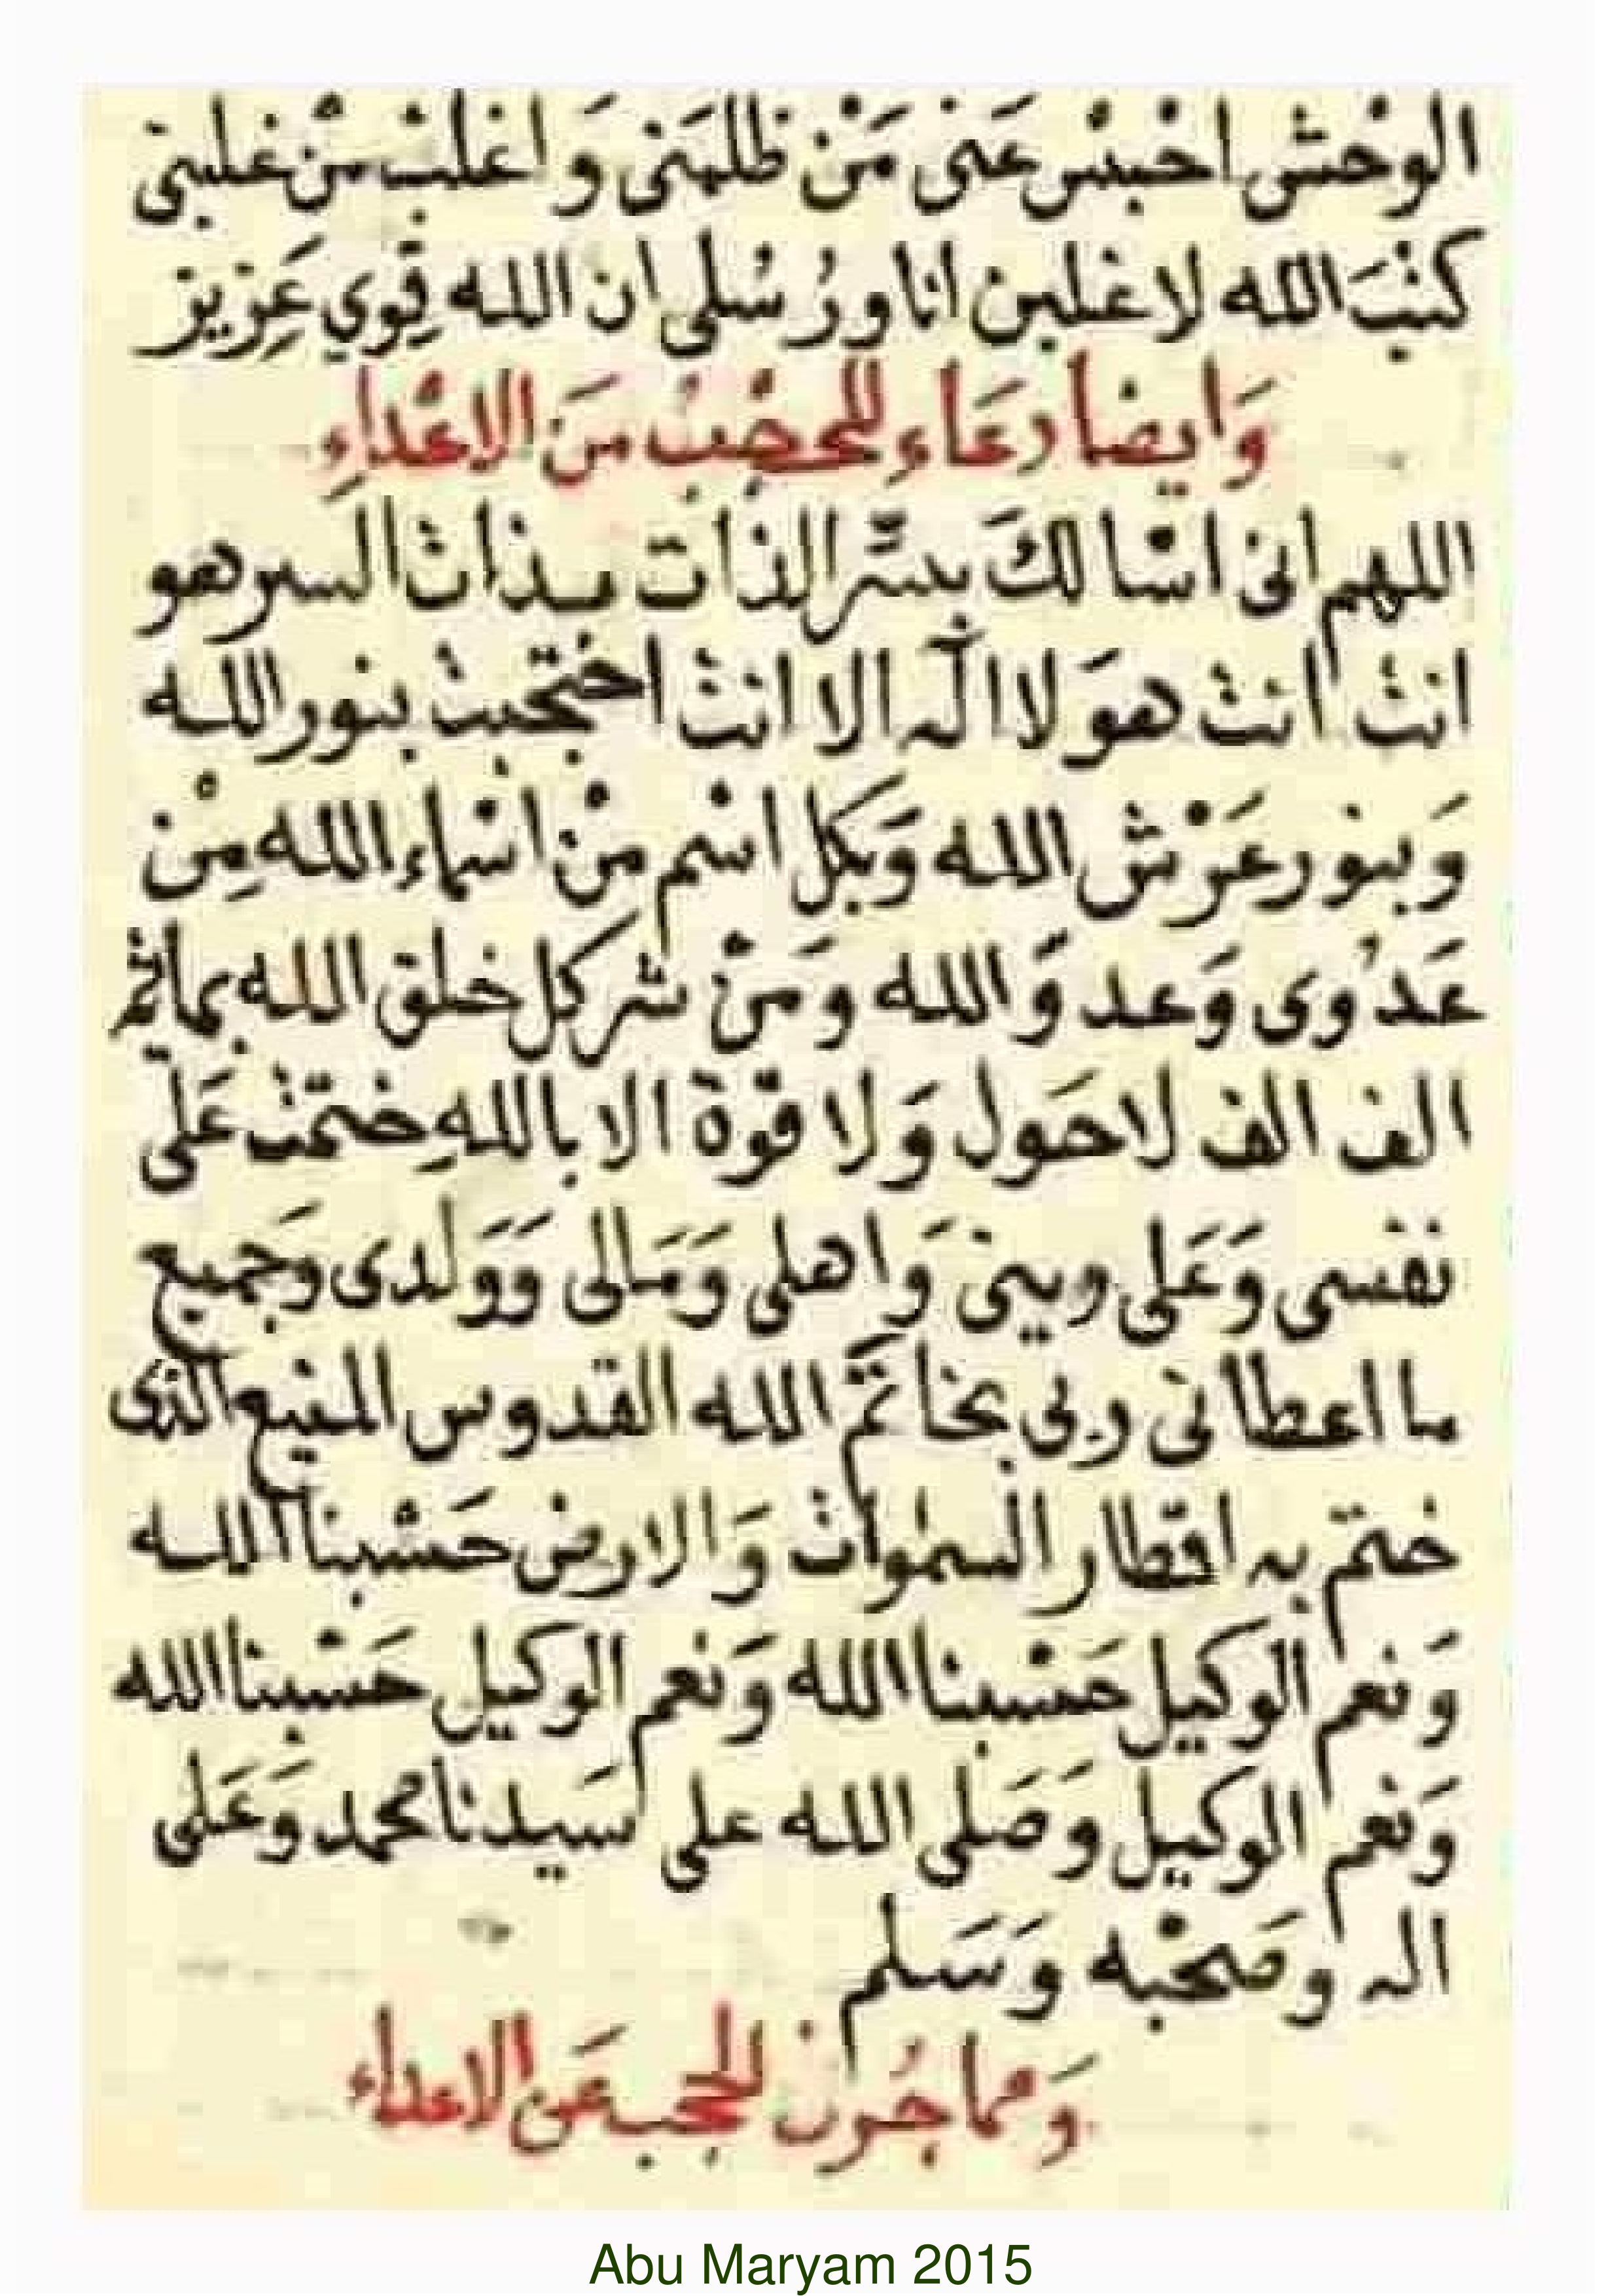 الوحْش احْبسْ عَنى مَنْ ظلمَنى وَاغلبْ مَنْ غلبنى
كتبَ الله لاغلبن انا ورُسُلى ان الله قِوي عَزِيز
وَايضا دعَاءِ للحجْبُ مِنَ الاعْداءِ
اللهم انى اسْالكَ بسّر الذات بذات السر هو
انتْ انتْ هوَ لا اله الا انتْ احْتجبتْ بنور الله
وَبنور عَرْش الله وَبكل اسْم منْ اسْماء الله مِنْ
عَدُوى وَعد وَالله وَمنْ شركل خلق الله بماتم
الف الف لاحَول وَلا قوّة الا باللهِ ختمْتْ عَلى
نفسى وَعَلى دينى وَاهلى وَمَالى وَوَلدى وَجَميع
ما اعطانى ربى بخاتَم الله القدوس المنيع الذى
ختم به اقطار السموات وَالارض حَسْبنا الله
وَنعم الوكيل حَسْبنا الله وَنعم الوكيل حَسْبنا الله
وَنعم الوكيل وَصَلى الله على سَيدنا محمد وَعَلى
اله وصَحْبه وَسَلم
وَمما جُرب للحجب عَن الاعداء
Abu Maryam 2015